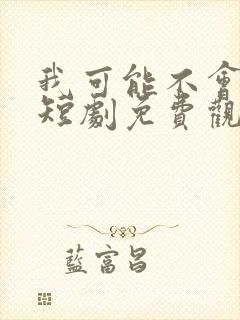 我可能不會
短劇免費觀
藍富昌